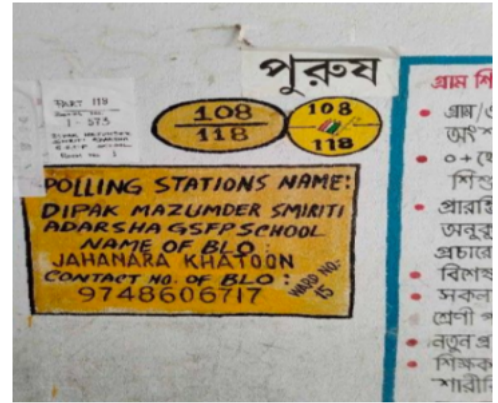 পুরুষ
PART 118
1 - 573
108
118
108
118
POLLING STATIONS NAME:
DIPAK MAZUMDER SMIRITI
ADARSHA GSFP SCHOOL
NAME OF BLO:
JAHANARA KHATOON
CONTACT NO. OF BLO:
9748606717
WARD NO.-
15
গ্রাম শি
গ্রাম/ও
অংশ
০+ থে
শিশু
প্রারম্ভি
অনুকূ
প্রচারে
বিশেষ
সকল
শ্রেণী প
নতুন প্র
শিক্ষক
শারীরি